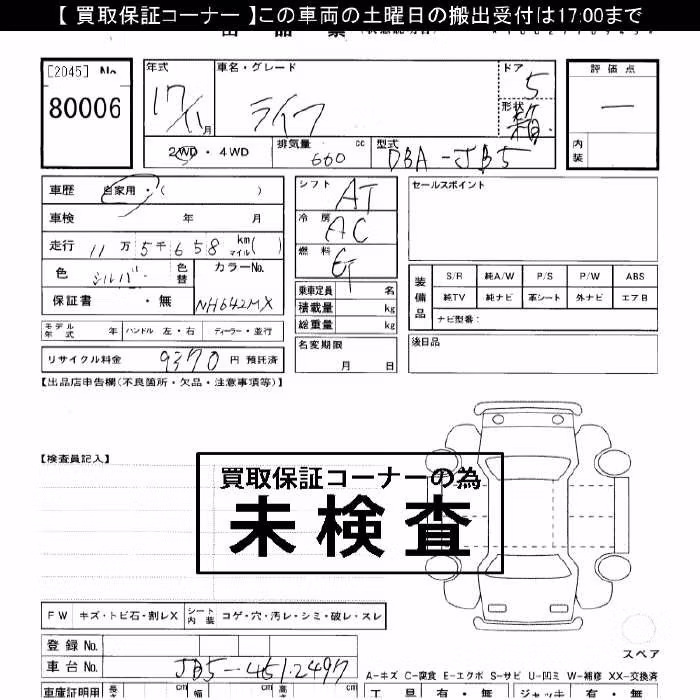 【 買取保証コーナー 】この車両の土曜日の搬出受付は17:00まで
[2045] No.
80006
年式 車名・グレード ドア 評価点
17/11月 ライフ 5 —
形状 箱
2WD・4WD 排気量 660 cc 型式 DBA-JB5 内装
車歴 自家用・( )
車検 年 月
走行 11万5千658 km マイル( )
色 シルバー 色替 カラーNo. NH642MX
保証書 ・無
シフト AT
冷房 AC
燃料 G
乗車定員 名
積載量 kg
総重量 kg
セールスポイント
装備品 S/R 純A/W P/S P/W ABS
純TV 純ナビ 革シート 外ナビ エアB
ナビ型番:
モデル年式 年 ハンドル 左・右 ディーラー・並行
名変期限 月 日
後日品
リサイクル料金 9370 円 預託済
【出品店申告欄(不良箇所・欠品・注意事項等)】
【検査員記入】
買取保証コーナーの為
未検査
FW キズ・トビ石・割レX シート内装 コゲ・穴・汚レ・シミ・破レ・スレ
スペア
登録 No.
車台 No. JB5-4512497
A-キズ C-腐食 E-エクボ S-サビ U-凹ミ W-補修 XX-交換済
車庫証明用 長さ cm 幅 cm 高さ cm 工具 有・無 ジャッキ 有・無